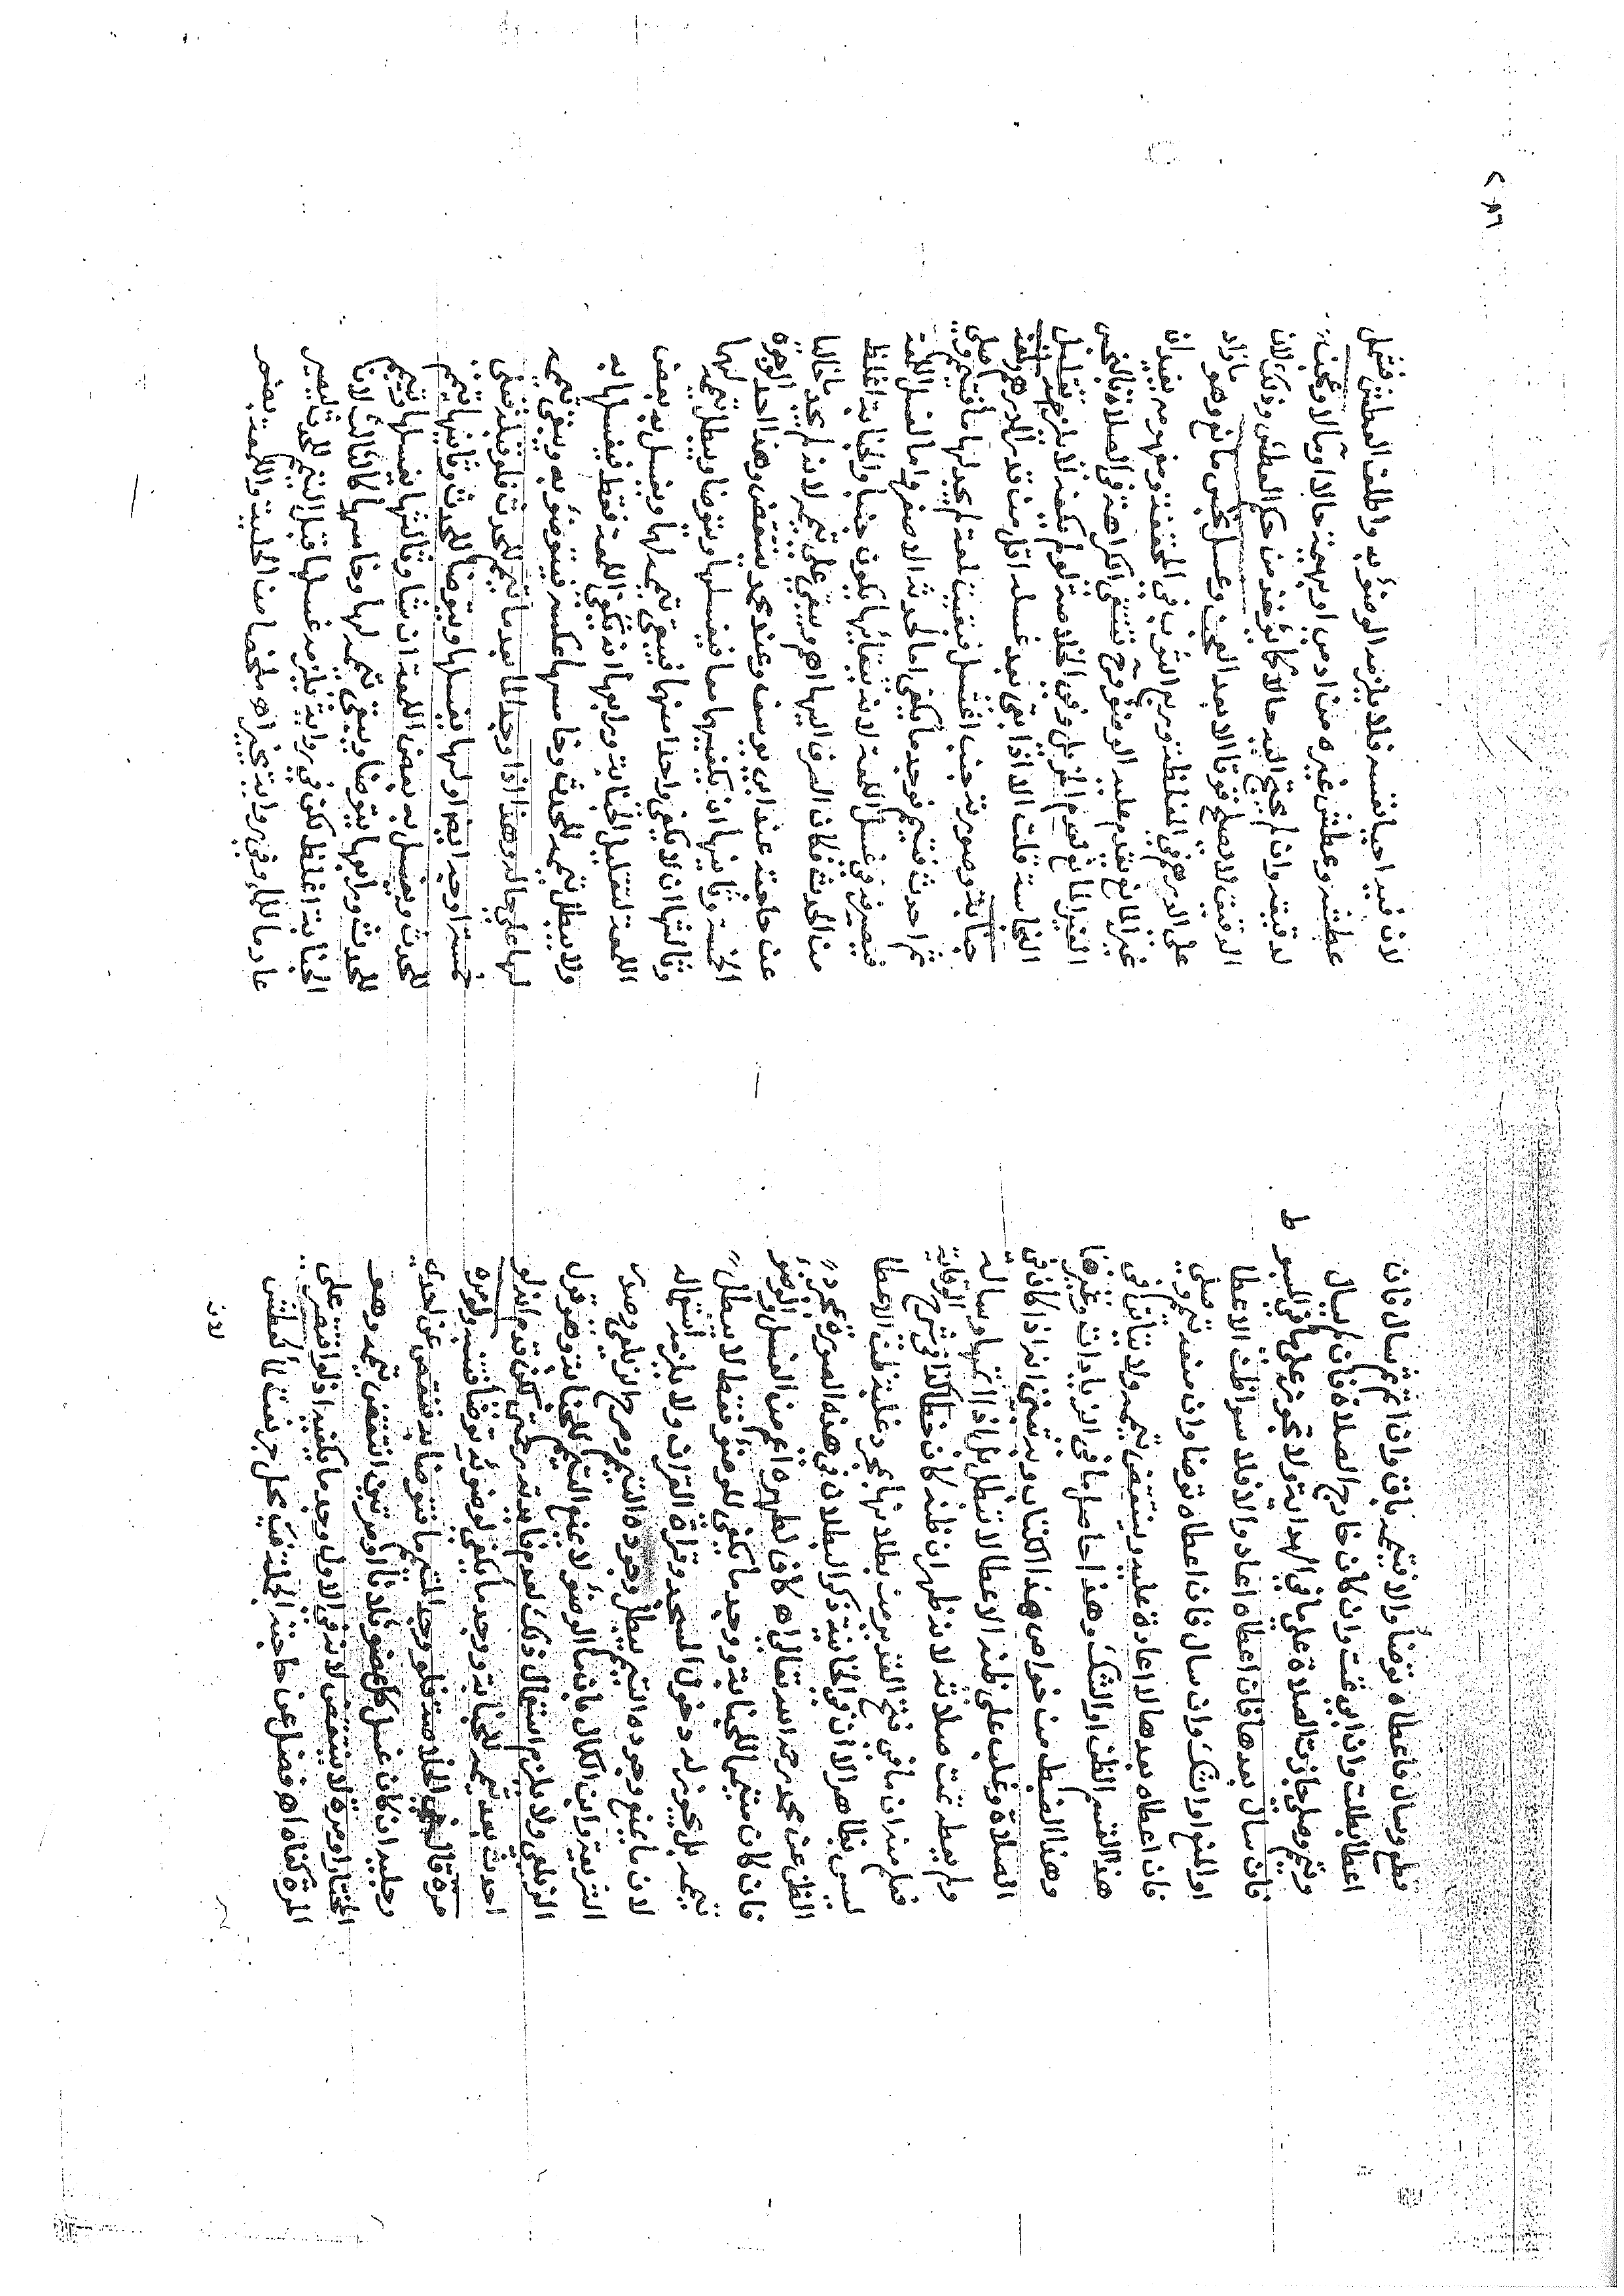 ٢٨٦
قطع وسال فاعطاه توضأ والا فتيممه باق وان اتم ثم سال فان
اعطا بطلت وان ابى تمت وان كان خارج الصلاة فان لم يسال
وتيمم وصلى جازت الصلاة على ما في الهداية ولا تجوز على ما في المبسوط
فان سال بعدها فان اعطاه اعاد والا فلا سوا ظن الاعطا
او المنع او الشك وان سال فان اعطاه توضا وان منعه تيمم وصلى
فان اعطاه بعدها لا اعادة عليه وينتقض تيممه ولا يتاتى في
هذا القسم الظن او الشك وهذا حاصل ما في الزيادات وغيرها
وهذا الضبط من خواص هذا الكتاب وبه تبين انه اذا كان في
الصلاة وغلب على ظنه الاعطا لا تبطل بل اذا اتمها وساله
ولم يعطه تمت صلاته لانه ظهر ان ظنه كان خطا كذا في شرح الوقاية
فعلم منه ان ما في فتح القدير من بطلانها بمجرد غلبة ظن الاعطا
ليس بظاهر الا ان في الخانية ذكر البطلان في هذه الصورة بمجرد
الظن عن محمد رحمه الله تعالى اه كاف لطهره اعم من الغسل والوضو
فان كان متيمما للجنابة ووجد ما يكفي للوضو فقط لا يبطل
تيممه بل يجوز له دخول المسجد وقراة القران ولا يلزمه استعماله
لان ما يمنع وجوده التيمم يبطل وجوده التيمم وصرح الزيلعي وصدر
الشريعة وابن الكمال بان ما الوضوء لا يمنع التيمم للجنابة وهو قول
الزيلعي ولا يلزم استعمال ذلك لعدم فايدته رحمتي لكن قدم انه لو
احدث بعد تيممه للجنابة ووجد ما يكفي لوضوئه توضا فتنبه ولو مرة
مرة قال في الخلاصة فلو وجد المتيمم ما فتوضا به فنقص عن احدى
رجليه ان كان غسل كل عضو ثلاثا او مرتين انتقض تيممه وهو
المختار او مرة لا ينتقض لانه في الاول وجد ما يكفيه اذ لو اقتصر على
المرة كفاه اه فضل عن حاجته الجملة في محل جر نعت لما كعطش
لان
لان فيه احيا نفسه فلا يلزمه الوضوء به واطلق العطش فشمل
عطشه وعطش غيره من ادمي او بهيمة حالا او مآلا وعجن
لدقيقه وان لم يحتج اليه حالا كما يؤخذ من حكم العطش وذلك لان
الدقيق لا يصلح قوتا الا بعد العجن وغسل نجس مانع وهو ما زاد
على الدرهم في المغلظة وربع الثوب في المخففة ومفهومه يفيد ان
غير المانع يقدم عليه الوضوء وح تنتفي الكراهة في الصلاة بالنجس
الغير المانع لعدم المزيل وفي الخلاصة لو لم يكفه لا يلزمه تقليل
النجاسة قلت الا اذا بقي بعد غسله اقل من قدر الدرهم ولمعة
جنابة وصورته جنب اغتسل فبقيت لمعة لم يجد لها ما فتيمم وصلى
ثم احدث فتيمم فوجد ما يكفي اما الحدث الاصغر واما لغسل اللمعة
فيصرفه في غسل اللمعة لانه ببقائها يكون جنبا والجنابة اغلظ
من الحدث فكان الصرف اليها اهم ويبقى على تيممه لانه لم يجد ما خاليا
عن حاجته عند ابي يوسف وعند محمد ينتقض وهذا احد الوجوه
الخمسة وثانيها ان يكفيهما معا فيغسلها ويتوضا ويبطل تيممه لهما
وثالثها ان لا يكفي واحدا منهما فيبقى تيممه لهما ويغسل به بعض
اللمعة لتقليل الجنابة ورابعها ان يكفي اللمعة فقط فيغسلها به
ولا يبطل تيممه للحدث وخامسها عكسه فيتوضؤ به ويبقى تيممه
لها على حاله وهذا اذا وجد الما بعد ما تيمم للحدث فلو قبله فهي
خمسة اوجه ايضا اولها يغسلها ويتوضا للحدث وثانيها يتيمم
للحدث ويغسل به بعض اللمعة ان شا وثالثها يغسلها ويتيمم
للحدث ورابعها يتوضا ويبقى تيممه لها وخامسها كالثالث لان
الجنابة اغلظ لكن في رواية يلزمه غسلها قبل التيمم للحدث ليصير
عادما للما وفي رواية يتخير اه ملخصا من الحلية واللمعة بضم